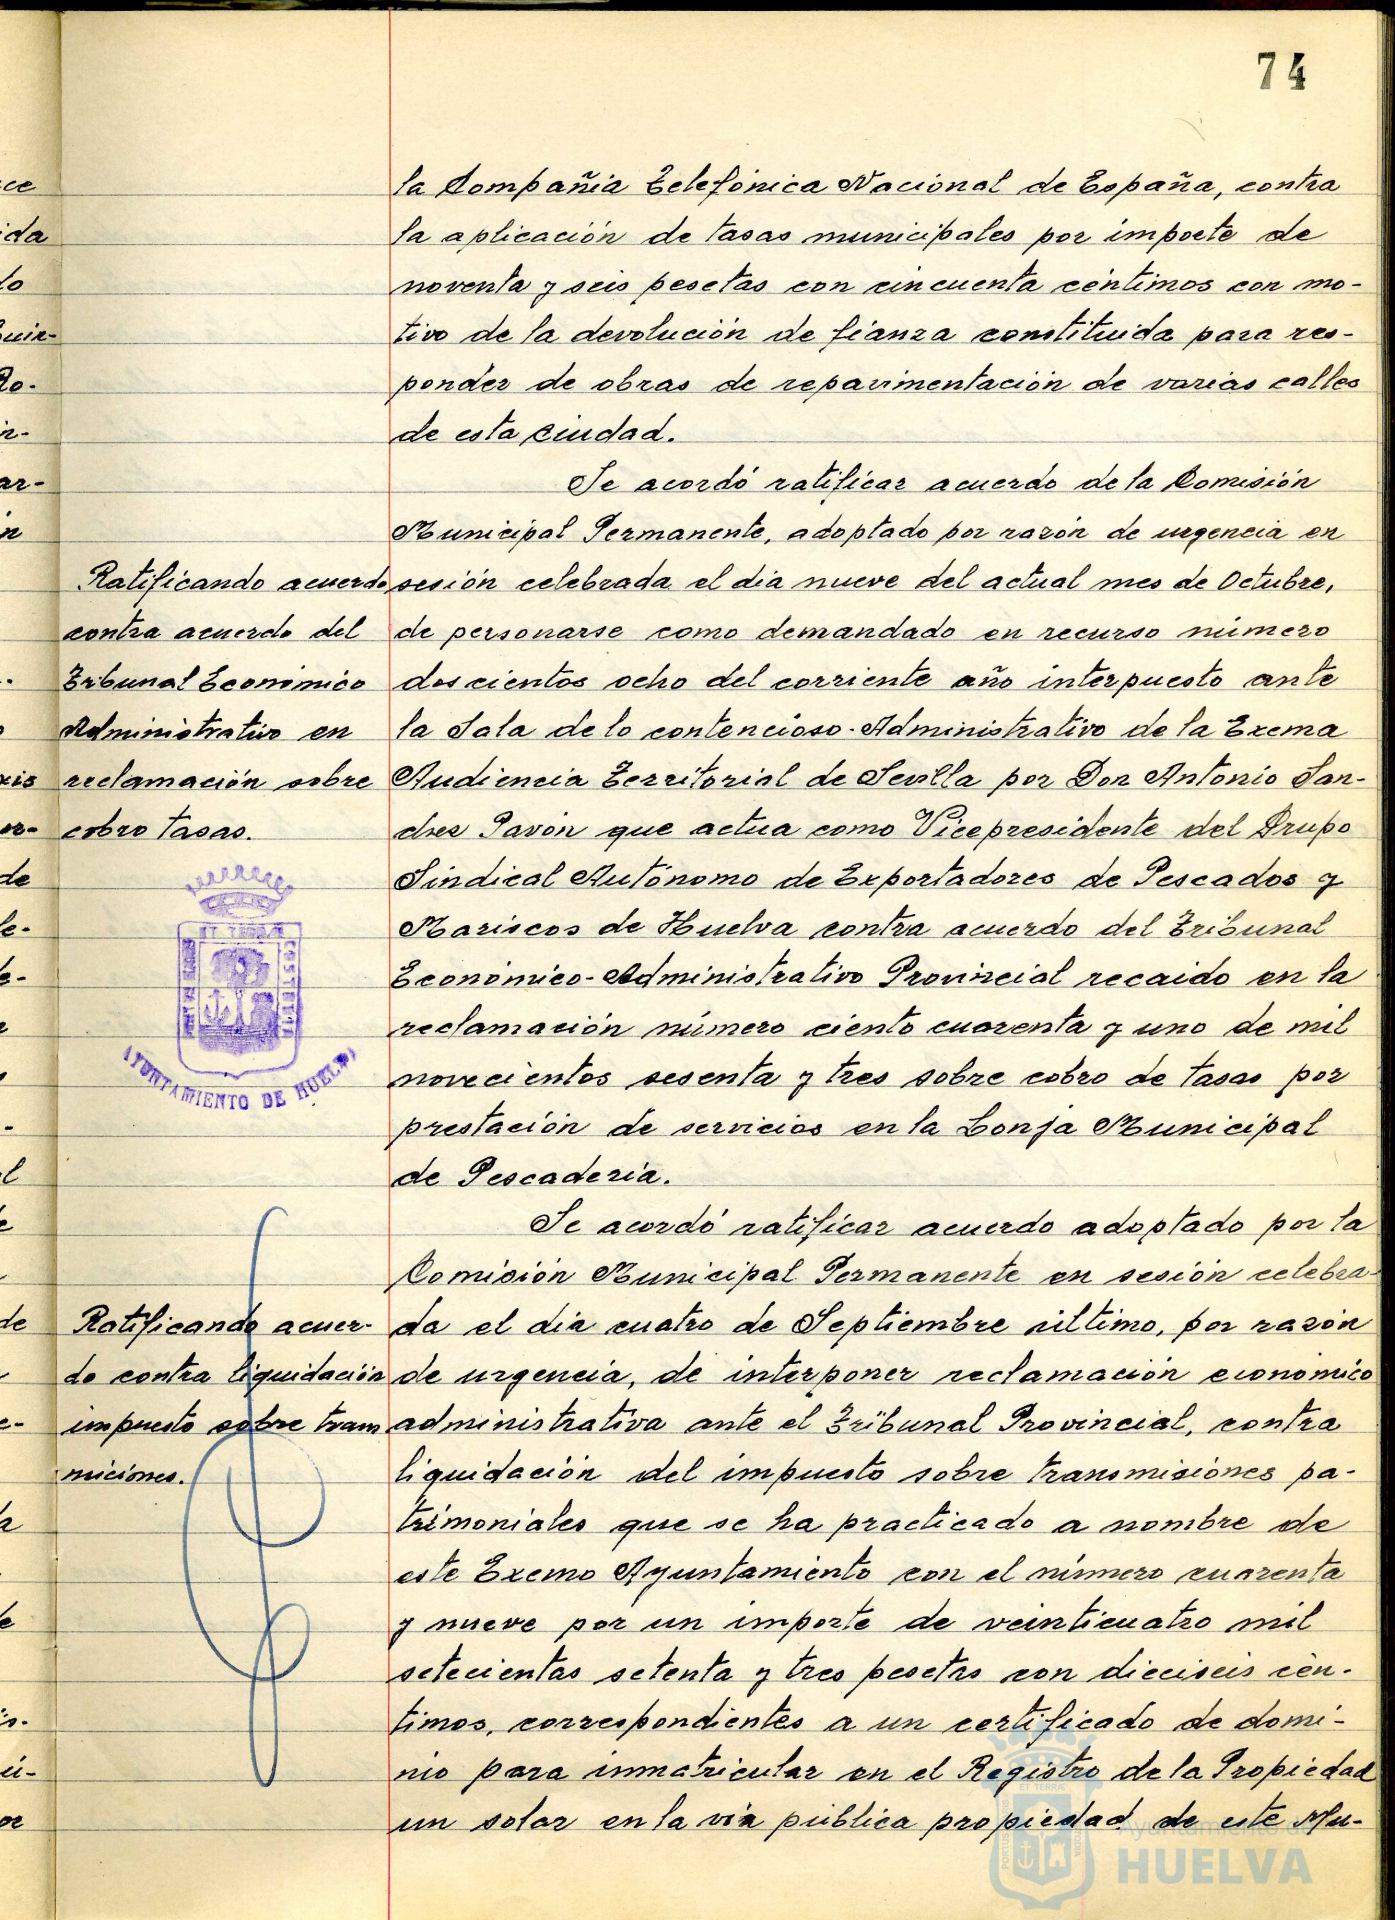 74
la Compañia Telefónica Nacional de España, contra
la aplicación de tasas municipales por importe de
noventa y seis pesetas con cincuenta céntimos con mo-
tivo de la devolución de fianza constituida para res-
ponder de obras de repavimentación de varias calles
de esta Ciudad.
Se acordó ratificar acuerdo de la Comisión
Municipal Permanente, adoptado por razón de urgencia en
sesión celebrada el dia nueve del actual mes de Octubre,
de personarse como demandado en recurso número
doscientos ocho del corriente año interpuesto ante
la Sala de lo contencioso-Administrativo de la Excma
Audiencia Territorial de Sevilla por Don Antonio San-
chez Pavón que actua como Vicepresidente del Grupo
Sindical Autónomo de Exportadores de Pescados y
Mariscos de Huelva contra acuerdo del Tribunal
Económico-Administrativo Provincial recaido en la
reclamación número ciento cuarenta y uno de mil
novecientos sesenta y tres sobre cobro de tasas por
prestación de servicios en la Lonja Municipal
de Pescadería.
Se acordó ratificar acuerdo adoptado por la
Comisión Municipal Permanente en sesión celebra-
da el dia cuatro de Septiembre último, por razón
de urgencia, de interponer reclamación económico
administrativa ante el Tribunal Provincial, contra
liquidación del impuesto sobre transmisiones pa-
trimoniales que se ha practicado a nombre de
este Excmo Ayuntamiento con el número cuarenta
y nueve por un importe de veinticuatro mil
setecientas setenta y tres pesetas con dieciseis cén-
timos, correspondientes a un certificado de domi-
nio para inmatricular en el Registro de la Propiedad
un solar en la vía pública propiedad de este Mu-
Ratificando acuerdo
contra acuerdo del
Tribunal Económico
Administrativo en
reclamación sobre
cobro tasas.
AYUNTAMIENTO DE HUELVA
Ratificando acuer-
do contra liquidación
impuesto sobre trans
miciones.
Ayuntamiento de
HUELVA